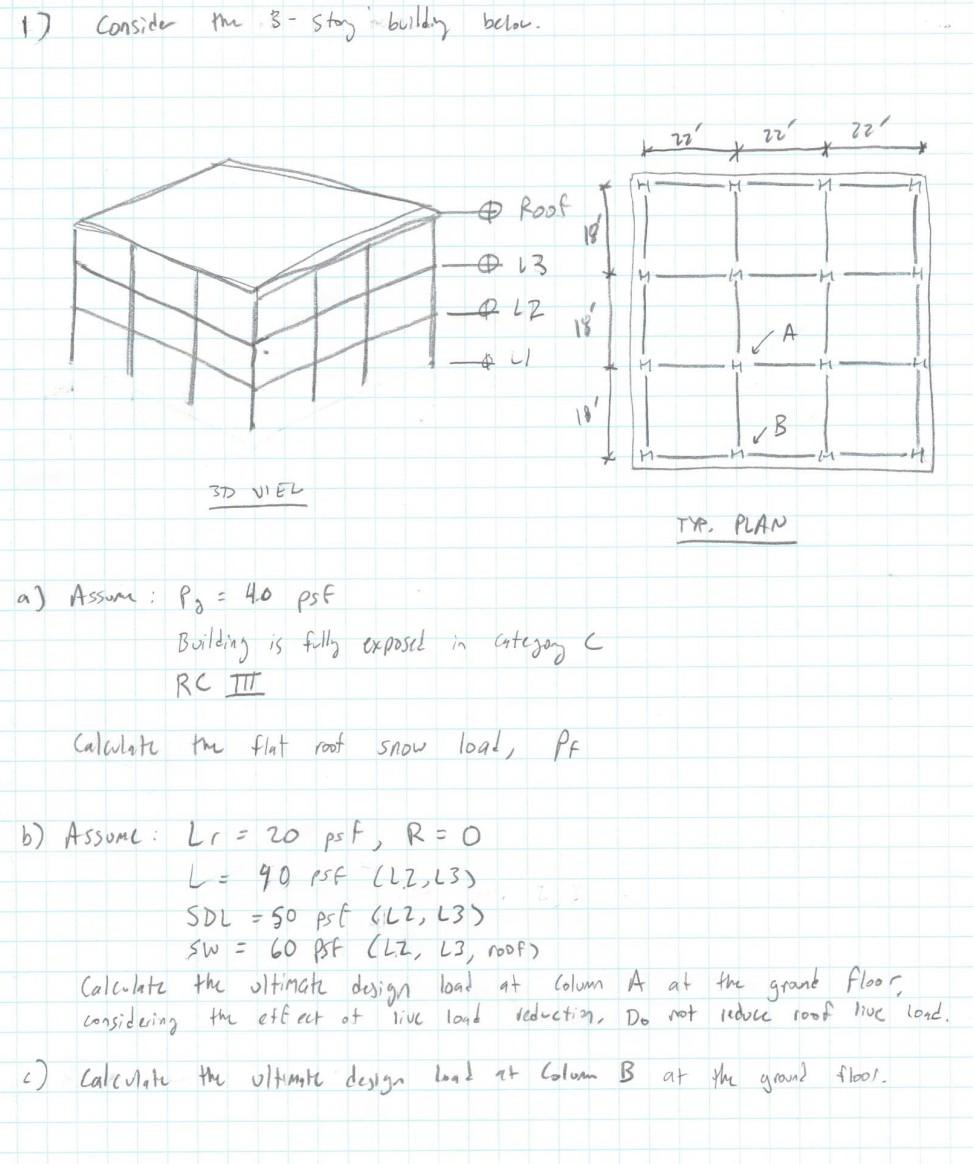 1) Consider the 3-story building below.
22' 22' 22'
Roof
L3
L2
L1
18'
18'
18'
A
B
3D VIEW
TYP. PLAN
a) Assume: Pg = 40 psf
Building is fully exposed in category C
RC III
Calculate the flat roof snow load, Pf
b) Assume: Lr = 20 psf, R = 0
L = 90 psf (L2, L3)
SDL = 50 psf (L2, L3)
SW = 60 psf (L2, L3, roof)
Calculate the ultimate design load at column A at the ground floor,
considering the effect of live load reduction. Do not reduce roof live load.
c) Calculate the ultimate design load at Column B at the ground floor.